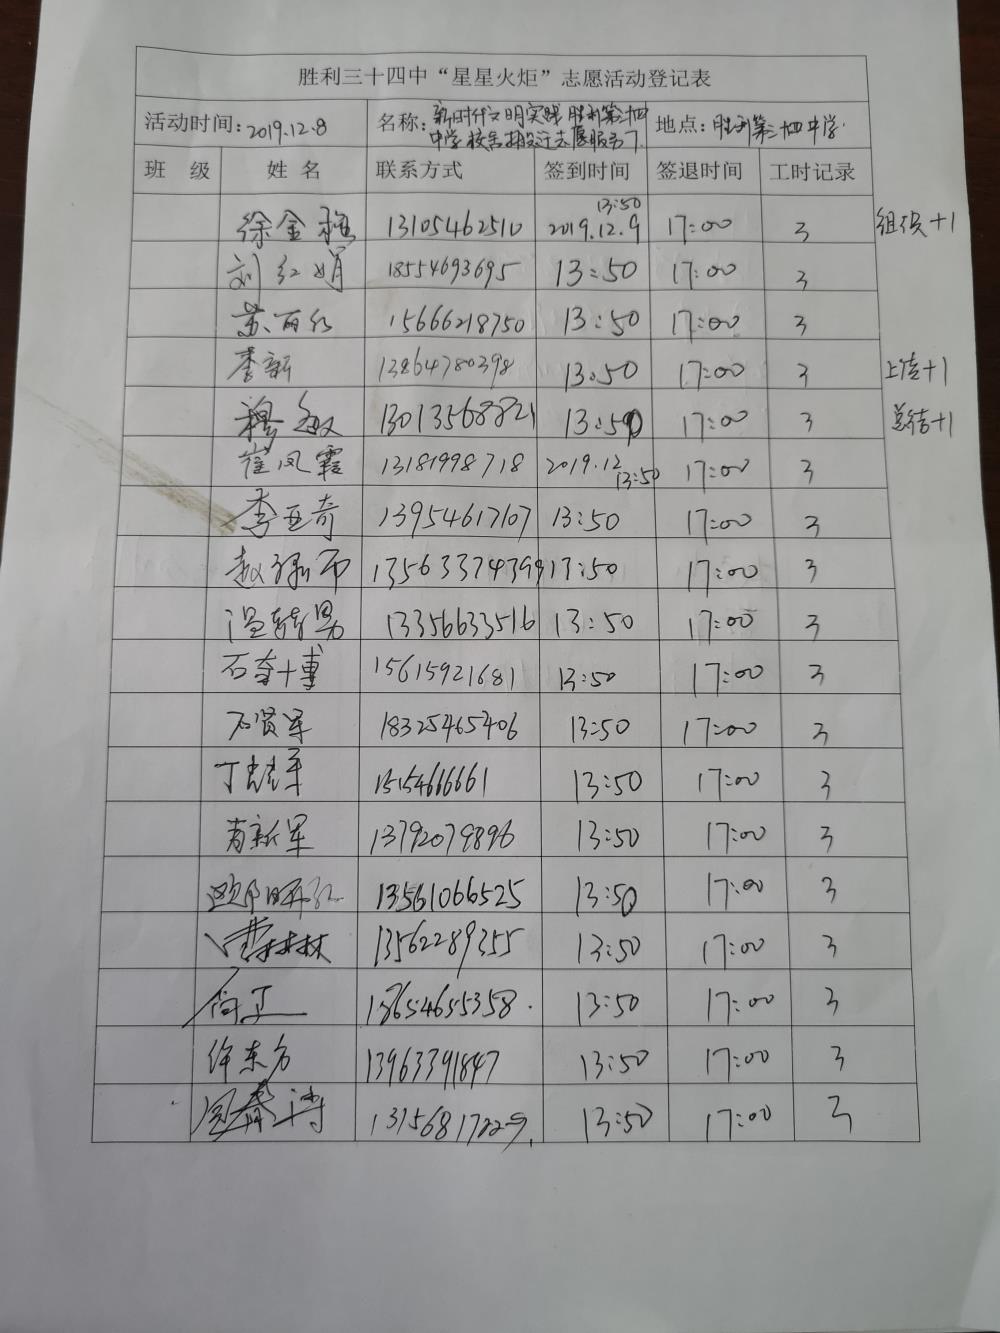 胜利三十四中“星星火炬”志愿活动登记表
活动时间:2019.12.8 名称:新时代文明实践胜利第三十四中学校舍搬迁志愿服务 地点:胜利第三十四中学
班 级 姓 名 联系方式 签到时间 签退时间 工时记录
徐金 13105462510 13:50 2019.12.9 17:00 3 组织+1
刘红娟 18554693695 13:50 17:00 3
苏丽红 15666218750 13:50 17:00 3
李新 13864780398 13:50 17:00 3 上传+1
穆敏 13013568821 13:50 17:00 3 总结+1
崔凤霞 13181998718 2019.12 13:50 17:00 3
李亚奇 13954617107 13:50 17:00 3
赵 13563374399 13:50 17:00 3
温 男 13356633516 13:50 17:00 3
石 博 15615921681 13:50 17:00 3
石贤军 18325465406 13:50 17:00 3
丁 军 13:50 17:00 3
肖新军 13792079896 13:50 17:00 3
欧阳 13561066525 13:50 17:00 3
曹 林 13562289355 13:50 17:00 3
尚卫 18654655358 13:50 17:00 3
徐东方 13963391847 13:50 17:00 3
涛 13:50 17:00 3